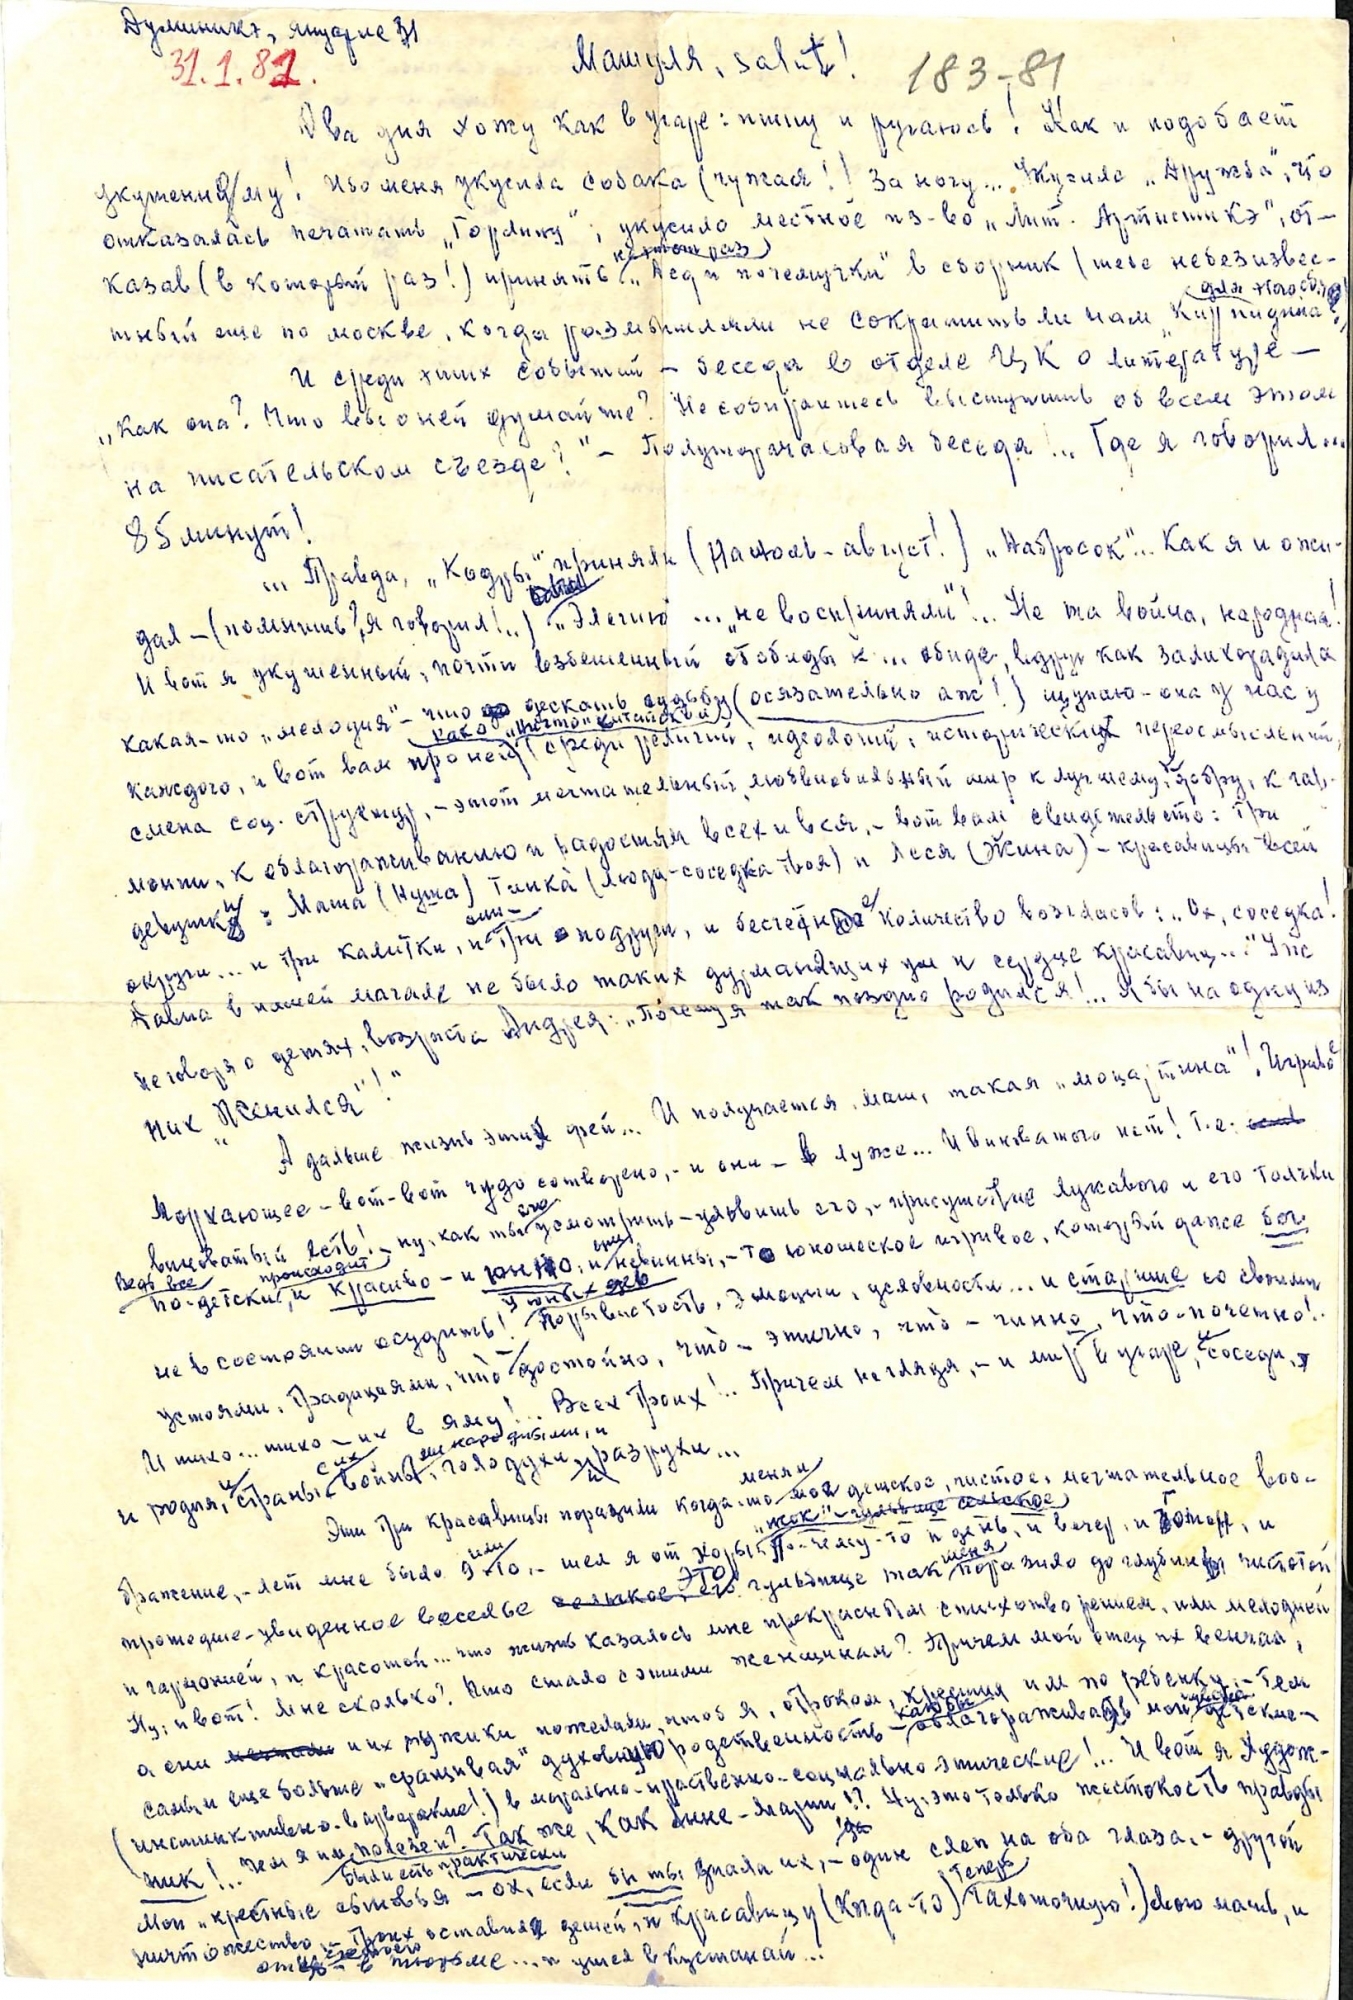 Думиникэ, януарие 31
31.1.81.
Машуля, salut! 183-81
Два дня хожу как в угаре: пишу и ругаюсь! Как и подобает
укушенному! Ибо меня укусила собака (чужая!) За ногу... Укусила „Дружба", что
отказалась печатать „Горлицу"; укусило местное из-во „Лит. Артистикэ", от-
казав (в который раз!) принять „Леди почемучки" в сборник (тебе небезизвес-
тный еще по москве, когда размышляли не сократить ли нам „Кирпидина"
И среди этих событий – беседа в отделе ЦК о литературе –
„Как она? Что вы о ней думайте? Не собираетесь выступить об всем этом
на писательском съезде?" – Полуторачасовая беседа!... Где я говорил...
85 минут!
... Правда, „Кодры" приняли (На июль-август!) „Набросок"... Как я и ожи-
дал – (помнишь?, я говорил!..) „Элегию" ... „не восприняли"!.. Не та война, народная!
И вот я укушенный, почти взбешенный от обиды к ... обиде, вдруг как залихорадила
какая-то „мелодия" – что дескать судьбу (осязательно аж!) щупаю – она у нас у
каждого, и вот вам про неё (среди религий, идеологий, исторических переосмыслений,
смена соц. структур, – этот мечтательный, любвиобильный мир к лучшему, к добру, к гар-
монии, к облагораживанию и радостям всех и вся, – вот вам свидетельство: Три
девушки: Маша (Нуша) Тинка (люда-соседка твоя) и Леся (Жина) – красавицы всей
округи... и три калитки, и три подруги, и бесчетное количество возгласов: „Ох, соседка!
Давно в нашей магале не было таких дурманящих ум и сердце красавиц..." Уж
не говоря о детях, возраста Андрея: „Почему я так поздно родился!... Я бы на одну из
них „Женился"!"
А дальше жизнь этих фей... И получается, маш, такая „моцартина"! Игриво
Порхающее – вот-вот чудо сотворено, – и они – в луже... И виноватого нет! Т.е.
виноватый есть! – ну, как ты его усмотришь – уловишь его, – присутствие лукавого и его толчки
Ведь все происходит
по-детски, и красиво – и юно, и они невинны, – то юношеское игривое, который даже бог
не в состоянии осудить! У юных дев порывистость, эмоции, условности... и старшие со своими
устоями, традициями, что достойно, что – этично, что – чинно, что – почетно!..
И тихо... тихо – их в яму!... Всех Троих!.. Причем не глядя, – и мир в угаре, и соседи,
и родня, и страны с их войны, голодухи, и разрухи...
Эти три красавицы поразили когда-то меня мое детское, чистое, мечтательное воо-
бражение, – лет мне было 9 или 10, – шел я от хоры, По-чему-то и день, и вечер, и потом, и
прошедше-увиденное веселье это гульбище так меня поразило до глубины чистотой
и гармонией, и красотой... что жизнь казалось мне прекрасным стихотворением, или мелодией
Ну, и вот! Мне сколько? Что стало с этими женщинам? Причем мой отец их венчал,
а они и их мужики пожелали, чтоб я, отроком, крестил им по ребенку, – тем
самым еще больше „сращивая" духовную родственность – как бы облагораживать мои детские-
(инстинктивно-варварские!) в морально-нраственно-социально-этические!.. И вот я Худож-
ник!.. Чем я им полезен? Так же, как Анне-Марии!? Ну, это только жестокость правды
Мои „крестные сыновья" – ох, если бы ты знала их, – один слеп на оба глаза, – другой
ничтожество, – троих оставил детей, и красавицу (Когда-то) (Теперь чахоточную!) свою мать, и
отец в тюрьме... и ушел в Кустанай...